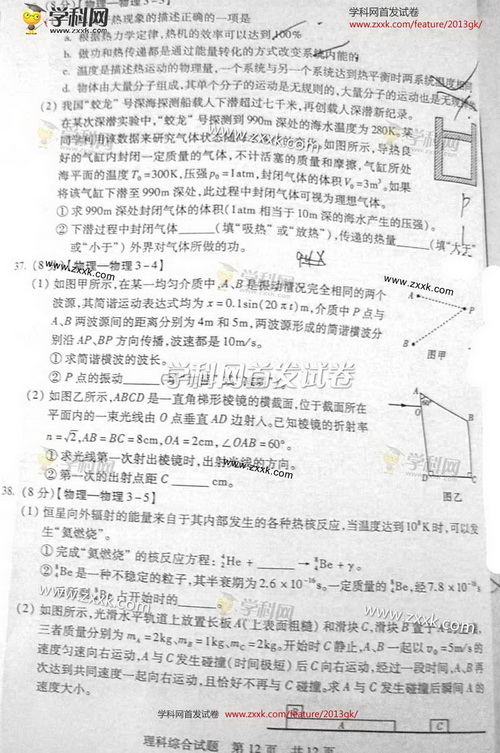 学科网首发试卷
www.zxxk.com/feature/2013gk/
学科网 www.zxxk.com
(8分)【物理—物理3-3】
热现象的描述正确的一项是
a. 根据热力学定律,热机的效率可以达到100%
b. 做功和热传递都是通过能量转化的方式改变系统内能的
c. 温度是描述热运动的物理量,一个系统与另一个系统达到热平衡时两系统温度相同
d. 物体由大量分子组成,其单个分子的运动是无规则的,大量分子的运动也是无规律的
(2) 我国“蛟龙”号深海探测船载人下潜超过七千米,再创载人深潜新纪录。
在某次深潜实验中,“蛟龙”号探测到990m深处的海水温度为280K。某
同学利用该数据来研究气体状态随海水 如图所示,导热良
好的气缸内封闭一定质量的气体,不计活塞的质量和摩擦,气缸所处
海平面的温度T₀=300K,压强p₀=1atm,封闭气体的体积V₀=3m³。如果
将该气缸下潜至990m深处,此过程中封闭气体可视为理想气体。
① 求990m深处封闭气体的体积(1atm相当于10m深的海水产生的压强)。
② 下潜过程中封闭气体____(填“吸热”或“放热”),传递的热量____(填“大于”
或“小于”)外界对气体所做的功。
www.zxxk.com
37. (8分)【物理—物理3-4】
(1) 如图甲所示,在某一均匀介质中,A、B是振动情况完全相同的两个
波源,其简谐运动表达式均为x=0.1sin(20πt)m,介质中P点与
A、B两波源间的距离分别为4m和5m,两波源形成的简谐横波分
别沿AP、BP方向传播,波速都是10m/s。
① 求简谐横波的波长。
② P点的振动____
A P B 图甲
学科网首发试卷
(2) 如图乙所示,ABCD是一直角梯形棱镜的横截面,位于截面所在
平面内的一束光线由O点垂直AD边射入。已知棱镜的折射率
n=√2,AB=BC=8cm,OA=2cm,∠OAB=60°。
① 求光线第一次射出棱镜时,出射光线的方向。
② 第一次的出射点距C____cm。
A 60° O B D C 图乙
www.zxxk.com
38. (8分)【物理—物理3-5】
(1) 恒星向外辐射的能量来自于其内部发生的各种热核反应,当温度达到10⁸K时,可以发
生“氦燃烧”。
① 完成“氦燃烧”的核反应方程:⁴₂He+____→⁸₄Be+γ。
② ⁸₄Be是一种不稳定的粒子,其半衰期为2.6×10⁻¹⁶s。一定质量的⁸₄Be,经7.8×10⁻¹⁶s
后所剩⁸₄Be占开始时的____。
(2) 如图所示,光滑水平轨道上放置长板A(上表面粗糙)和滑块C,滑块B置于A的左端,
三者质量分别为m_A=2kg、m_B=1kg、m_C=2kg。开始时C静止,A、B一起以v₀=5m/s的
速度匀速向右运动,A与C发生碰撞(时间极短)后C向右运动,经过一段时间,A、B再
次达到共同速度一起向右运动,且恰好不再与C碰撞。求A与C发生碰撞后瞬间A的
速度大小。
B A C
学科网首发试卷 www.zxxk.com/feature/2013gk/
理科综合试题 第12页 共12页